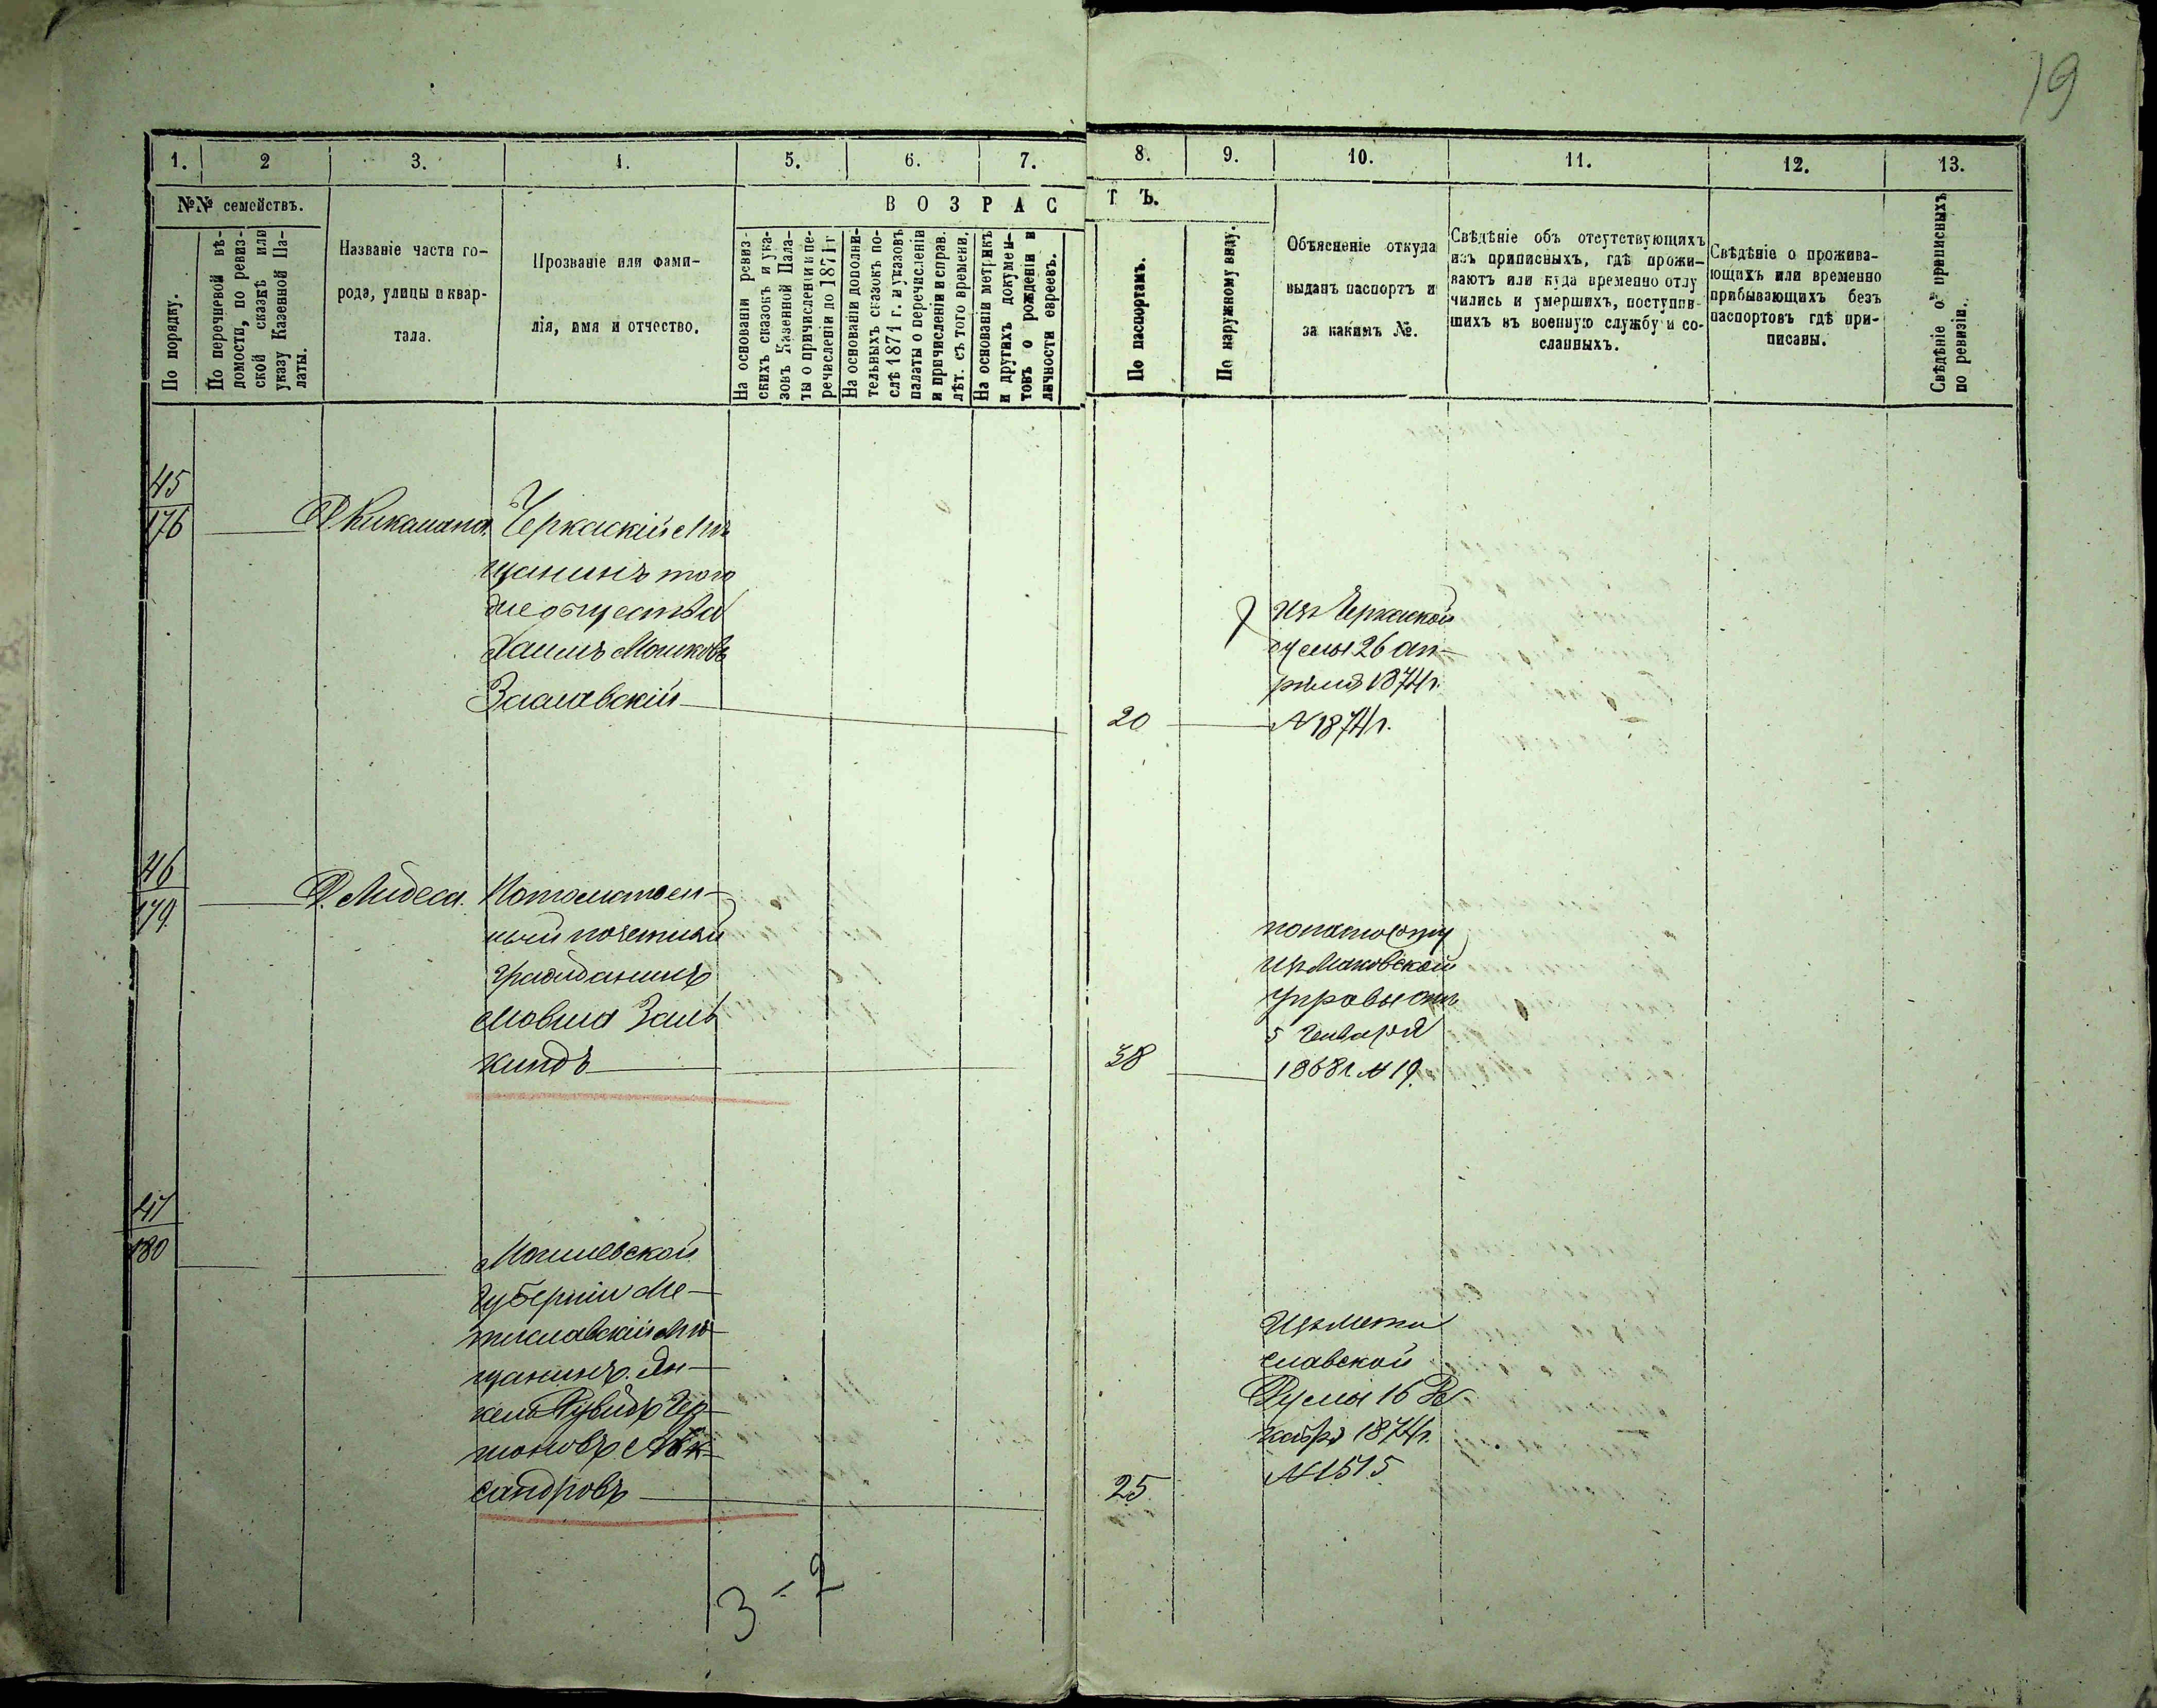 19
1. 2 3. 4. 5. 6. 7. 8. 9. 10. 11. 12. 13.
№№ семействъ.
По порядку.
По перечневой вѣ-
домости, по ревиз-
ской сказкѣ или
указу Казенной Па-
латы.
Названіе части го-
рода, улицы и квар-
тала.
Прозваніе или фами-
лія, имя и отчество.
ВОЗРАС
Т Ъ.
На основаніи ревиз-
скихъ сказокъ и ука-
зовъ Казенной Пала-
ты о причисленіи и пе-
речисленіи по 1871 г
На основаніи дополни-
тельныхъ сказокъ по-
слѣ 1871 г. и указовъ
палаты о перечисленіи
и причисленіи и справ.
лѣт. съ того времени.
На основаніи метрикъ
и другихъ докумен-
товъ о рожденіи и
личности евреевъ.
По паспортамъ.
По наружному виду.
Объясненіе откуда
выданъ паспортъ и
за какимъ №.
Свѣдѣніе объ отсутствующихъ
изъ приписныхъ, гдѣ прожи-
ваютъ или куда временно отлу
чились и умершихъ, поступив-
шихъ въ военную службу и со-
сланныхъ.
Свѣдѣніе о прожива-
ющихъ или временно
прибывающихъ безъ
паспортовъ гдѣ при-
писаны.
Свѣдѣніе о приписныхъ
по ревизіи.
45
176
Черкаскій мѣ
щанинъ того
же общества
Хаимъ Мошковъ
Заславскій
20
изъ Черкаской
думы 26 ап-
рѣля 1874 г.
№ 1874 г.
46
179
Д. Лидеса.
Потомствен-
ный почетный
гражданинъ
Мовша Заль
киндъ
38
изъ
Управы отъ
5 Генваря
1868 г. № 19.
47
180
Могилевской
губерніи Мс-
тиславскій мѣ
щанинъ Ян-
кель Рувидъ Гер
шоновъ Алек-
сандровъ
25
Изъ Мсти
славской
Думы 16 Де
кабря 1874 г.
№ 1515
3 - 2